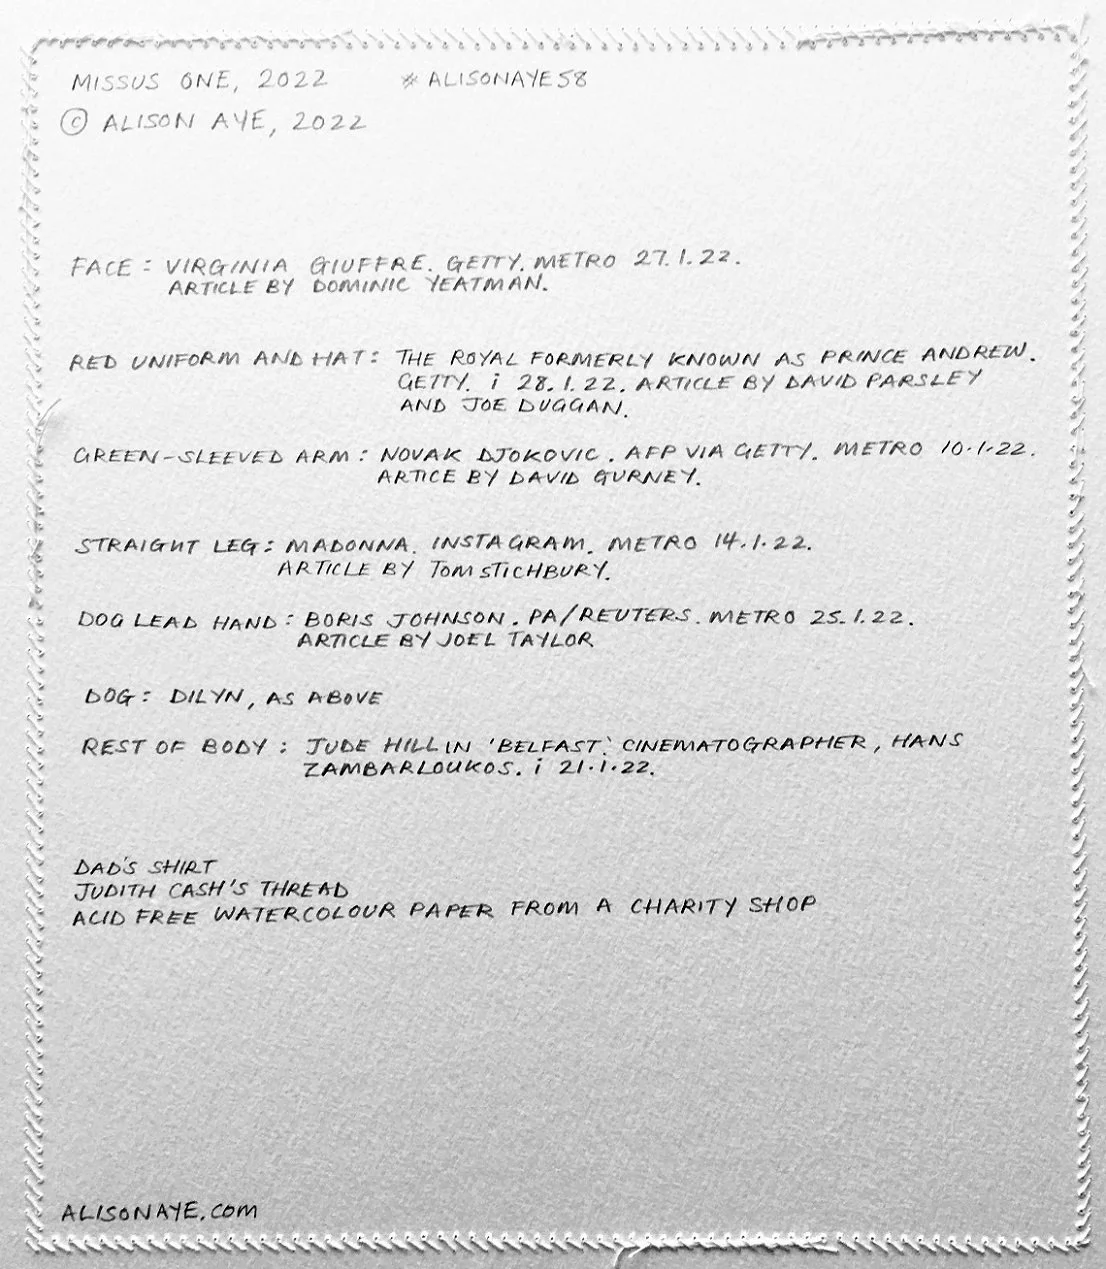 MISSUS ONE, 2022 # ALISONAYE58
© ALISON AYE, 2022
FACE : VIRGINIA GIUFFRE. GETTY. METRO 27.1.22.
ARTICLE BY DOMINIC YEATMAN.
RED UNIFORM AND HAT : THE ROYAL FORMERLY KNOWN AS PRINCE ANDREW.
GETTY. i 28.1.22. ARTICLE BY DAVID PARSLEY
AND JOE DUGGAN.
GREEN-SLEEVED ARM : NOVAK DJOKOVIC. AFP VIA GETTY. METRO 10.1.22.
ARTICE BY DAVID GURNEY.
STRAIGHT LEG : MADONNA. INSTAGRAM. METRO 14.1.22.
ARTICLE BY TOM STICHBURY.
DOG LEAD HAND : BORIS JOHNSON. PA/REUTERS. METRO 25.1.22.
ARTICLE BY JOEL TAYLOR
DOG : DILYN, AS ABOVE
REST OF BODY : JUDE HILL IN 'BELFAST'. CINEMATOGRAPHER, HANS
ZAMBARLOUKOS. i 21.1.22.
DAD'S SHIRT
JUDITH CASH'S THREAD
ACID FREE WATERCOLOUR PAPER FROM A CHARITY SHOP
ALISONAYE.COM